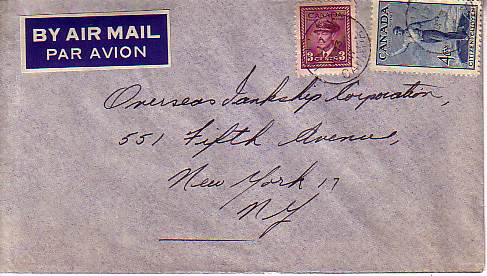 BY AIR MAIL
PAR AVION
CANADA
3 CENTS 3
CANADA
4¢
Overseas Tankship Corporation,
551 Fifth Avenue,
New York 17
NY